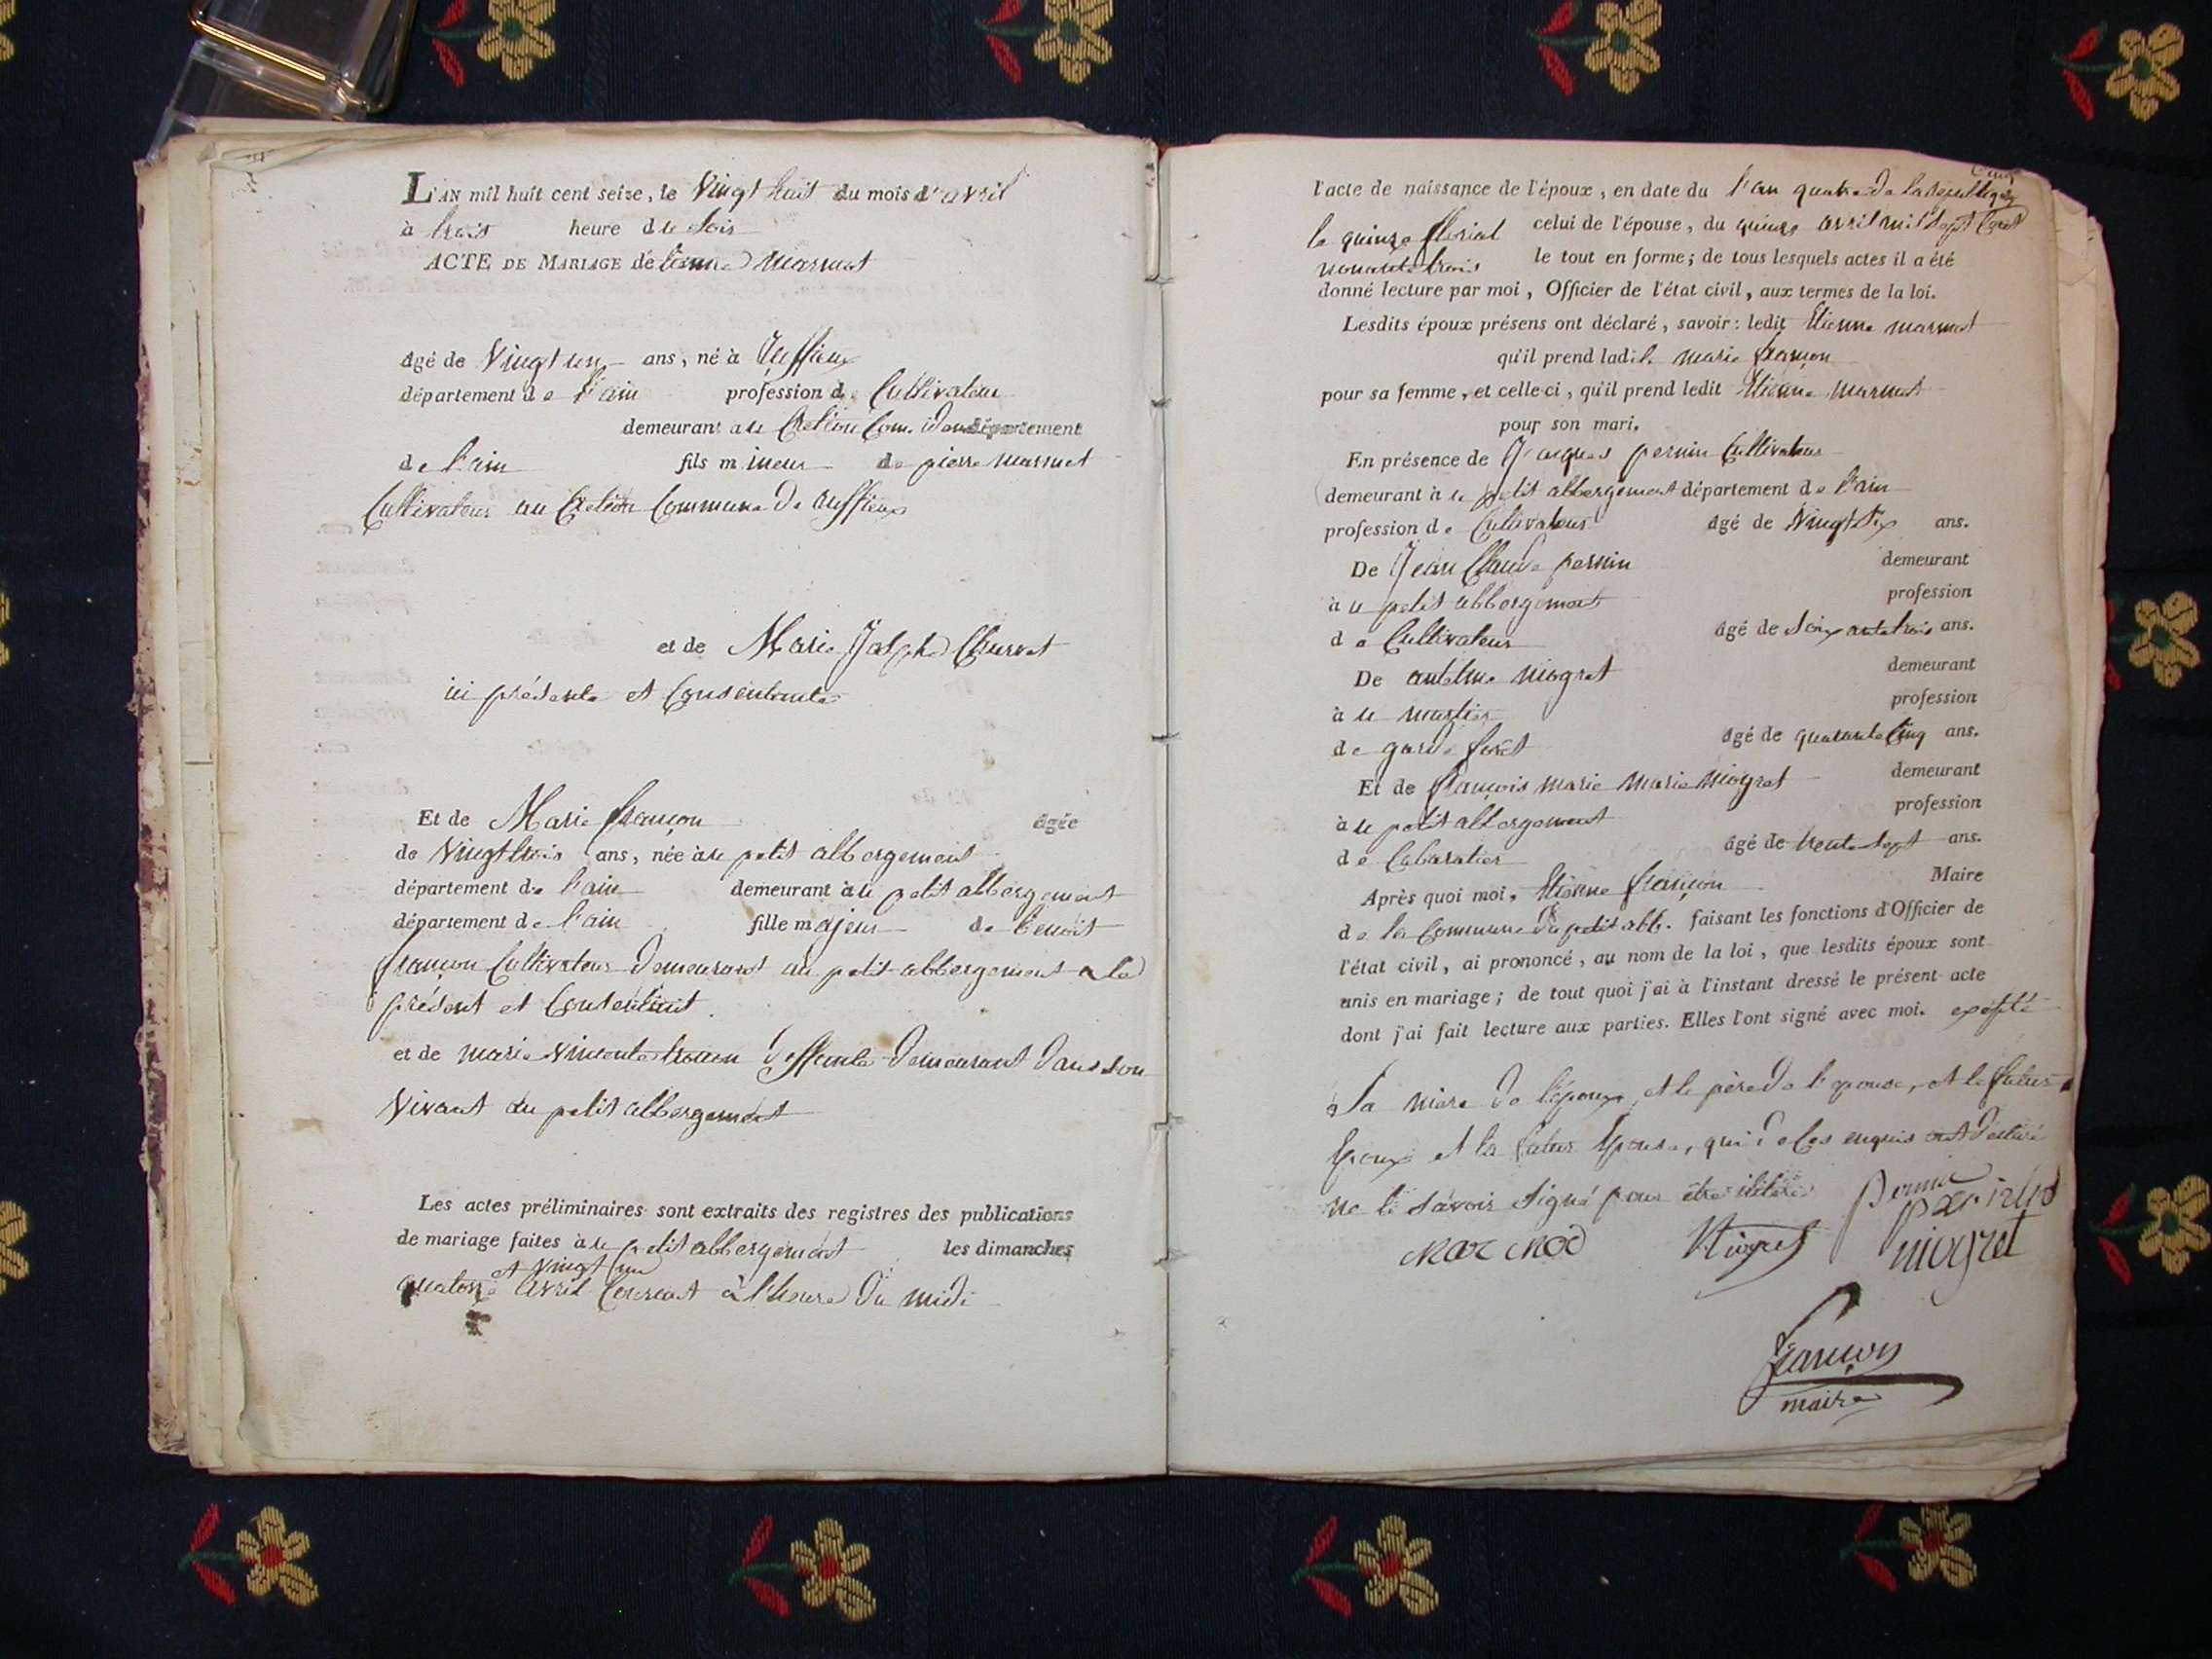 L'AN mil huit cent seize, le Vingt huit du mois d'avril
à trois heure du soir
ACTE DE MARIAGE de Etienne marmet
âgé de Vingt un ans, né à
département de l'ain profession de Cultivateur
demeurant au Com. département
de l'ain fils mineur de pierre marmet
Cultivateur au Commune de
et de Marie Josephe Charvet
ici présente et Consentante
Et de Marie françon âgée
de Vingt trois ans, née à u petit abbergement
département de l'ain demeurant à u petit abbergement
département de l'ain fille majeur de benoit
françon Cultivateur demeurant au petit abbergement
présent et Consentant.
et de marie deffunte demeurant dans son
Vivant au petit abbergement
Les actes préliminaires sont extraits des registres des publications
de mariage faites à u petit abbergement les dimanches
et vingt un
quatorze avril Courant à l'heure du midi
Cinq
l'acte de naissance de l'époux, en date du l'an quatre de la république
le quinze florial celui de l'épouse, du quinze avril mil sept Cent
nonante trois le tout en forme; de tous lesquels actes il a été
donné lecture par moi, Officier de l'état civil, aux termes de la loi.
Lesdits époux présens ont déclaré, savoir: ledit Etienne marmet
qu'il prend ladite marie françon
pour sa femme, et celle-ci, qu'il prend ledit Etienne marmet
pour son mari.
En présence de Jacques pernin Cultivateur
demeurant à u petit abbergement département de l'ain
profession de Cultivateur âgé de Vingt six ans.
De Jean Claude pernin demeurant
à u petit abbergement profession
de Cultivateur âgé de soixante trois ans.
De antelme niogret demeurant
à u profession
de garde forêt âgé de quarante Cinq ans.
Et de françois marie marie niogret demeurant
à u petit abbergement profession
de Cabaratier âgé de trente sept ans.
Après quoi moi, Etienne françon Maire
de la Commune du petit abb. faisant les fonctions d'Officier de
l'état civil, ai prononcé, au nom de la loi, que lesdits époux sont
unis en mariage; de tout quoi j'ai à l'instant dressé le présent acte
dont j'ai fait lecture aux parties. Elles l'ont signé avec moi.
La mere de l'époux, et le père de l'epouse, et le futur
Epoux et la futur Epouse, qui de Ces enquis ont déclaré
ne le savoir signé pour être
pernin
niogret
françon
maire